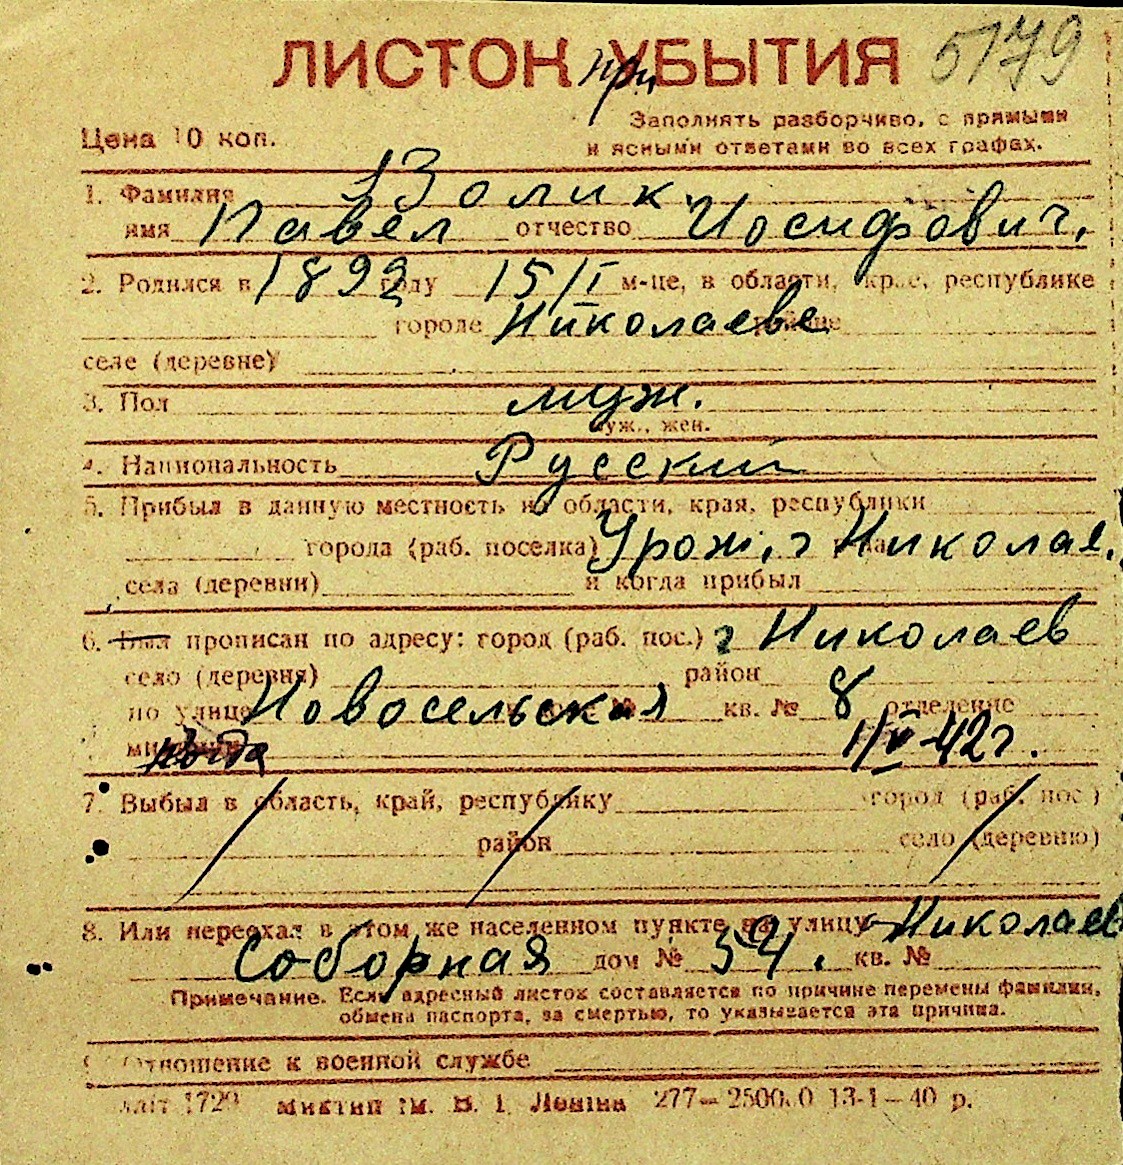 ЛИСТОК УБЫТИЯ 5179
при
Заполнять разборчиво, с прямыми
Цена 10 коп.
и ясными ответами во всех графах.
1. Фамилия
имя Павел отчество Иосифович,
2. Родился в 1892 году 15/I м-це, в области, крае, республике
городе Николаеве
селе (деревне)
3. Пол муж.
муж., жен.
4. Национальность Русский
5. Прибыл в данную местность из области, края, республики
города (раб. поселка) Урож. г Николае.
села (деревни) и когда прибыл
6. Был прописан по адресу: город (раб. пос.) г Николаев
село (деревня) район
по улице Новосельская № кв. № 8 отделение
1/V-42 г.
7. Выбыл в область, край, республику город (раб. пос.)
район село (деревню)
8. Или переехал в этом же населенном пункте на улицу Николаев
Соборная дом № 54. кв. №
Примечание. Если адресный листок составляется по причине перемены фамилии,
обмена паспорта, за смертью, то указывается эта причина.
9. Отношение к военной службе
1729 Миктип ім. В. І. Леніна 277—2500.0 13-1—40 р.